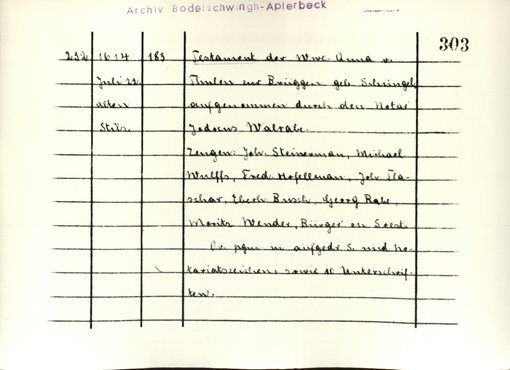 Archiv Bodelschwingh-Aplerbeck
303
232 1614 183 Testament der Wwe. Anna v.
Juli 22. Thulen zur Brüggen geb. Schüngel,
alten aufgenommen durch den Notar
Stils. Jodocus Walrabe.
Zeugen: Joh. Steinerman, Michael
Wulffs, Fred. Hofellman, Joh. Fla-
schar, Eberh. Busch, Georg Rabe,
Moritz Wender, Bürger in Soest.
Or. pgm. m. aufgedr. S. und No-
tariatszeichen, sowie 10 Unterschrif-
ten.